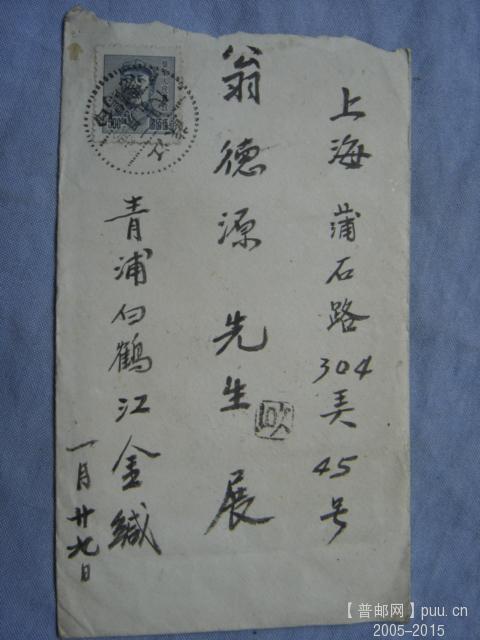 上海蒲石路304弄45号
翁德源先生 展
青浦白鶴江金緘
一月廿九日
【普邮网】puu.cn
2005-2015